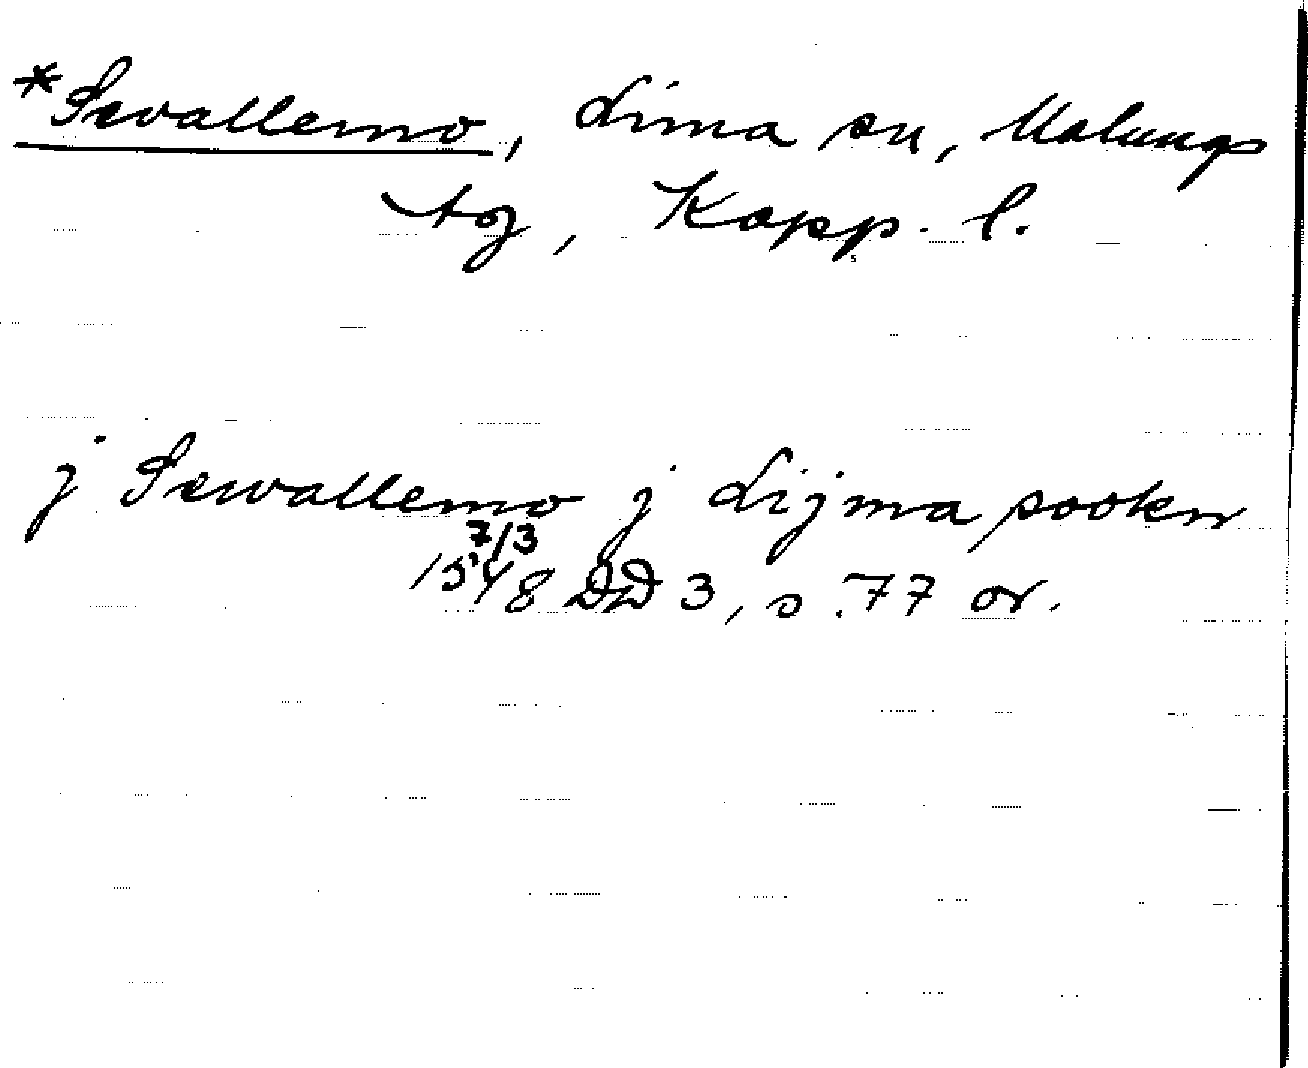 *Sevallemo, Lima sn, Malungs
tg, Kopp. l.
j Sewallemo j Lijma sookn
7/3
1548 DD 3, s. 77 or.